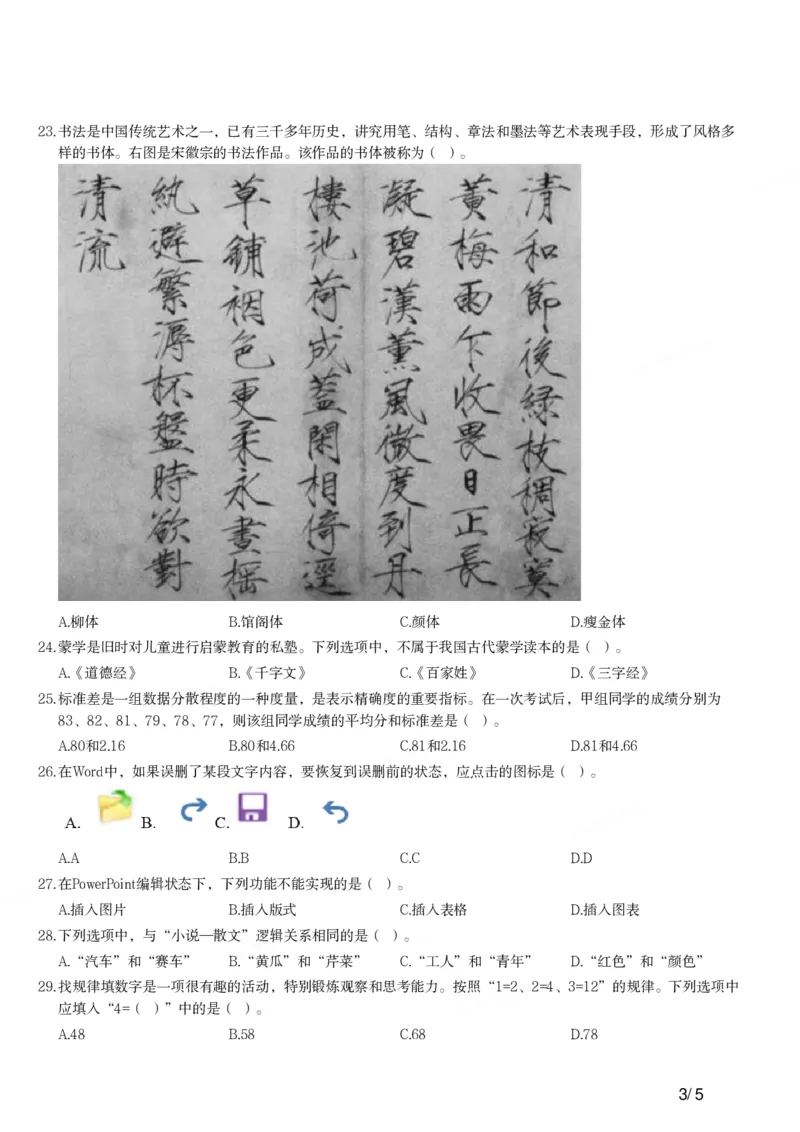 23.书法是中国传统艺术之一，已有三千多年历史，讲究用笔、结构、章法和墨法等艺术表现手段，形成了风格多
样的书体。右图是宋徽宗的书法作品。该作品的书体被称为（ ）。
清和節後綠枝稠寂寞
黃梅雨乍收畏日正長
凝碧漢薰風微度到丹
樓池荷成蓋閑相倚逕
草鋪裀色更柔永晝搖
紈避繁溽杯盤時欲對
清流
A.柳体 B.馆阁体 C.颜体 D.瘦金体
24.蒙学是旧时对儿童进行启蒙教育的私塾。下列选项中，不属于我国古代蒙学读本的是（ ）。
A.《道德经》 B.《千字文》 C.《百家姓》 D.《三字经》
25.标准差是一组数据分散程度的一种度量，是表示精确度的重要指标。在一次考试后，甲组同学的成绩分别为
83、82、81、79、78、77，则该组同学成绩的平均分和标准差是（ ）。
A.80和2.16 B.80和4.66 C.81和2.16 D.81和4.66
26.在Word中，如果误删了某段文字内容，要恢复到误删前的状态，应点击的图标是（ ）。
A. B. C. D.
A.A B.B C.C D.D
27.在PowerPoint编辑状态下，下列功能不能实现的是（ ）。
A.插入图片 B.插入版式 C.插入表格 D.插入图表
28.下列选项中，与“小说—散文”逻辑关系相同的是（ ）。
A.“汽车”和“赛车” B.“黄瓜”和“芹菜” C.“工人”和“青年” D.“红色”和“颜色”
29.找规律填数字是一项很有趣的活动，特别锻炼观察和思考能力。按照“1=2、2=4、3=12”的规律。下列选项中
应填入“4=（ ）”中的是（ ）。
A.48 B.58 C.68 D.78
3/5